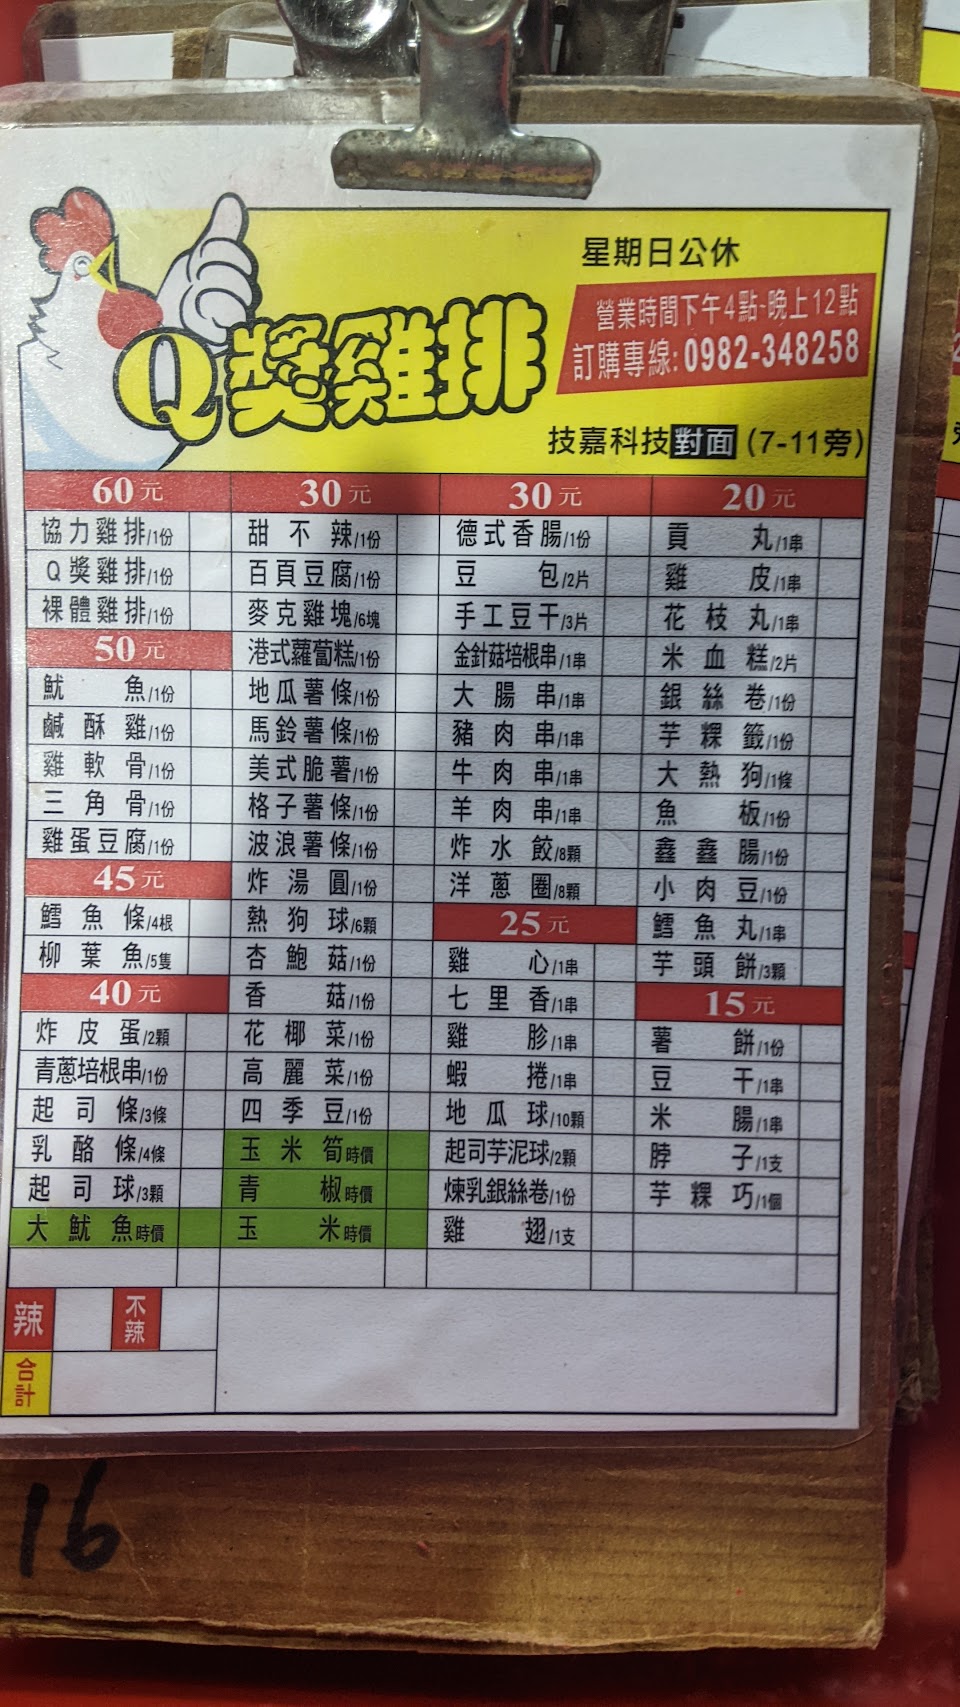 星期日公休
營業時間下午4點~晚上12點
訂購專線:0982-348258
Q獎雞排
技嘉科技對面(7-11旁)
60元
協力雞排/1份
Q獎雞排/1份
裸體雞排/1份
50元
魷魚/1份
鹹酥雞/1份
雞軟骨/1份
三角骨/1份
雞蛋豆腐/1份
45元
鱈魚條/4根
柳葉魚/5隻
40元
炸皮蛋/2顆
青蔥培根串/1份
起司條/3條
乳酪條/4條
起司球/3顆
大魷魚時價
30元
甜不辣/1份
百頁豆腐/1份
麥克雞塊/6塊
港式蘿蔔糕/1份
地瓜薯條/1份
馬鈴薯條/1份
美式脆薯/1份
格子薯條/1份
波浪薯條/1份
炸湯圓/1份
熱狗球/6顆
杏鮑菇/1份
香菇/1份
花椰菜/1份
高麗菜/1份
四季豆/1份
玉米筍時價
青椒時價
玉米時價
30元
德式香腸/1份
豆包/2片
手工豆干/3片
金針菇培根串/1串
大腸串/1串
豬肉串/1串
牛肉串/1串
羊肉串/1串
炸水餃/8顆
洋蔥圈/8顆
25元
雞心/1串
七里香/1串
雞胗/1串
蝦捲/1串
地瓜球/10顆
起司芋泥球/2顆
煉乳銀絲卷/1份
雞翅/1支
20元
貢丸/1串
雞皮/1串
花枝丸/1串
米血糕/2片
銀絲卷/1份
芋粿籤/1份
大熱狗/1條
魚板/1份
鑫鑫腸/1份
小肉豆/1份
鱈魚丸/1串
芋頭餅/3顆
15元
薯餅/1份
豆干/1串
米腸/1串
脖子/1支
芋粿巧/1個
辣
不辣
合計
16